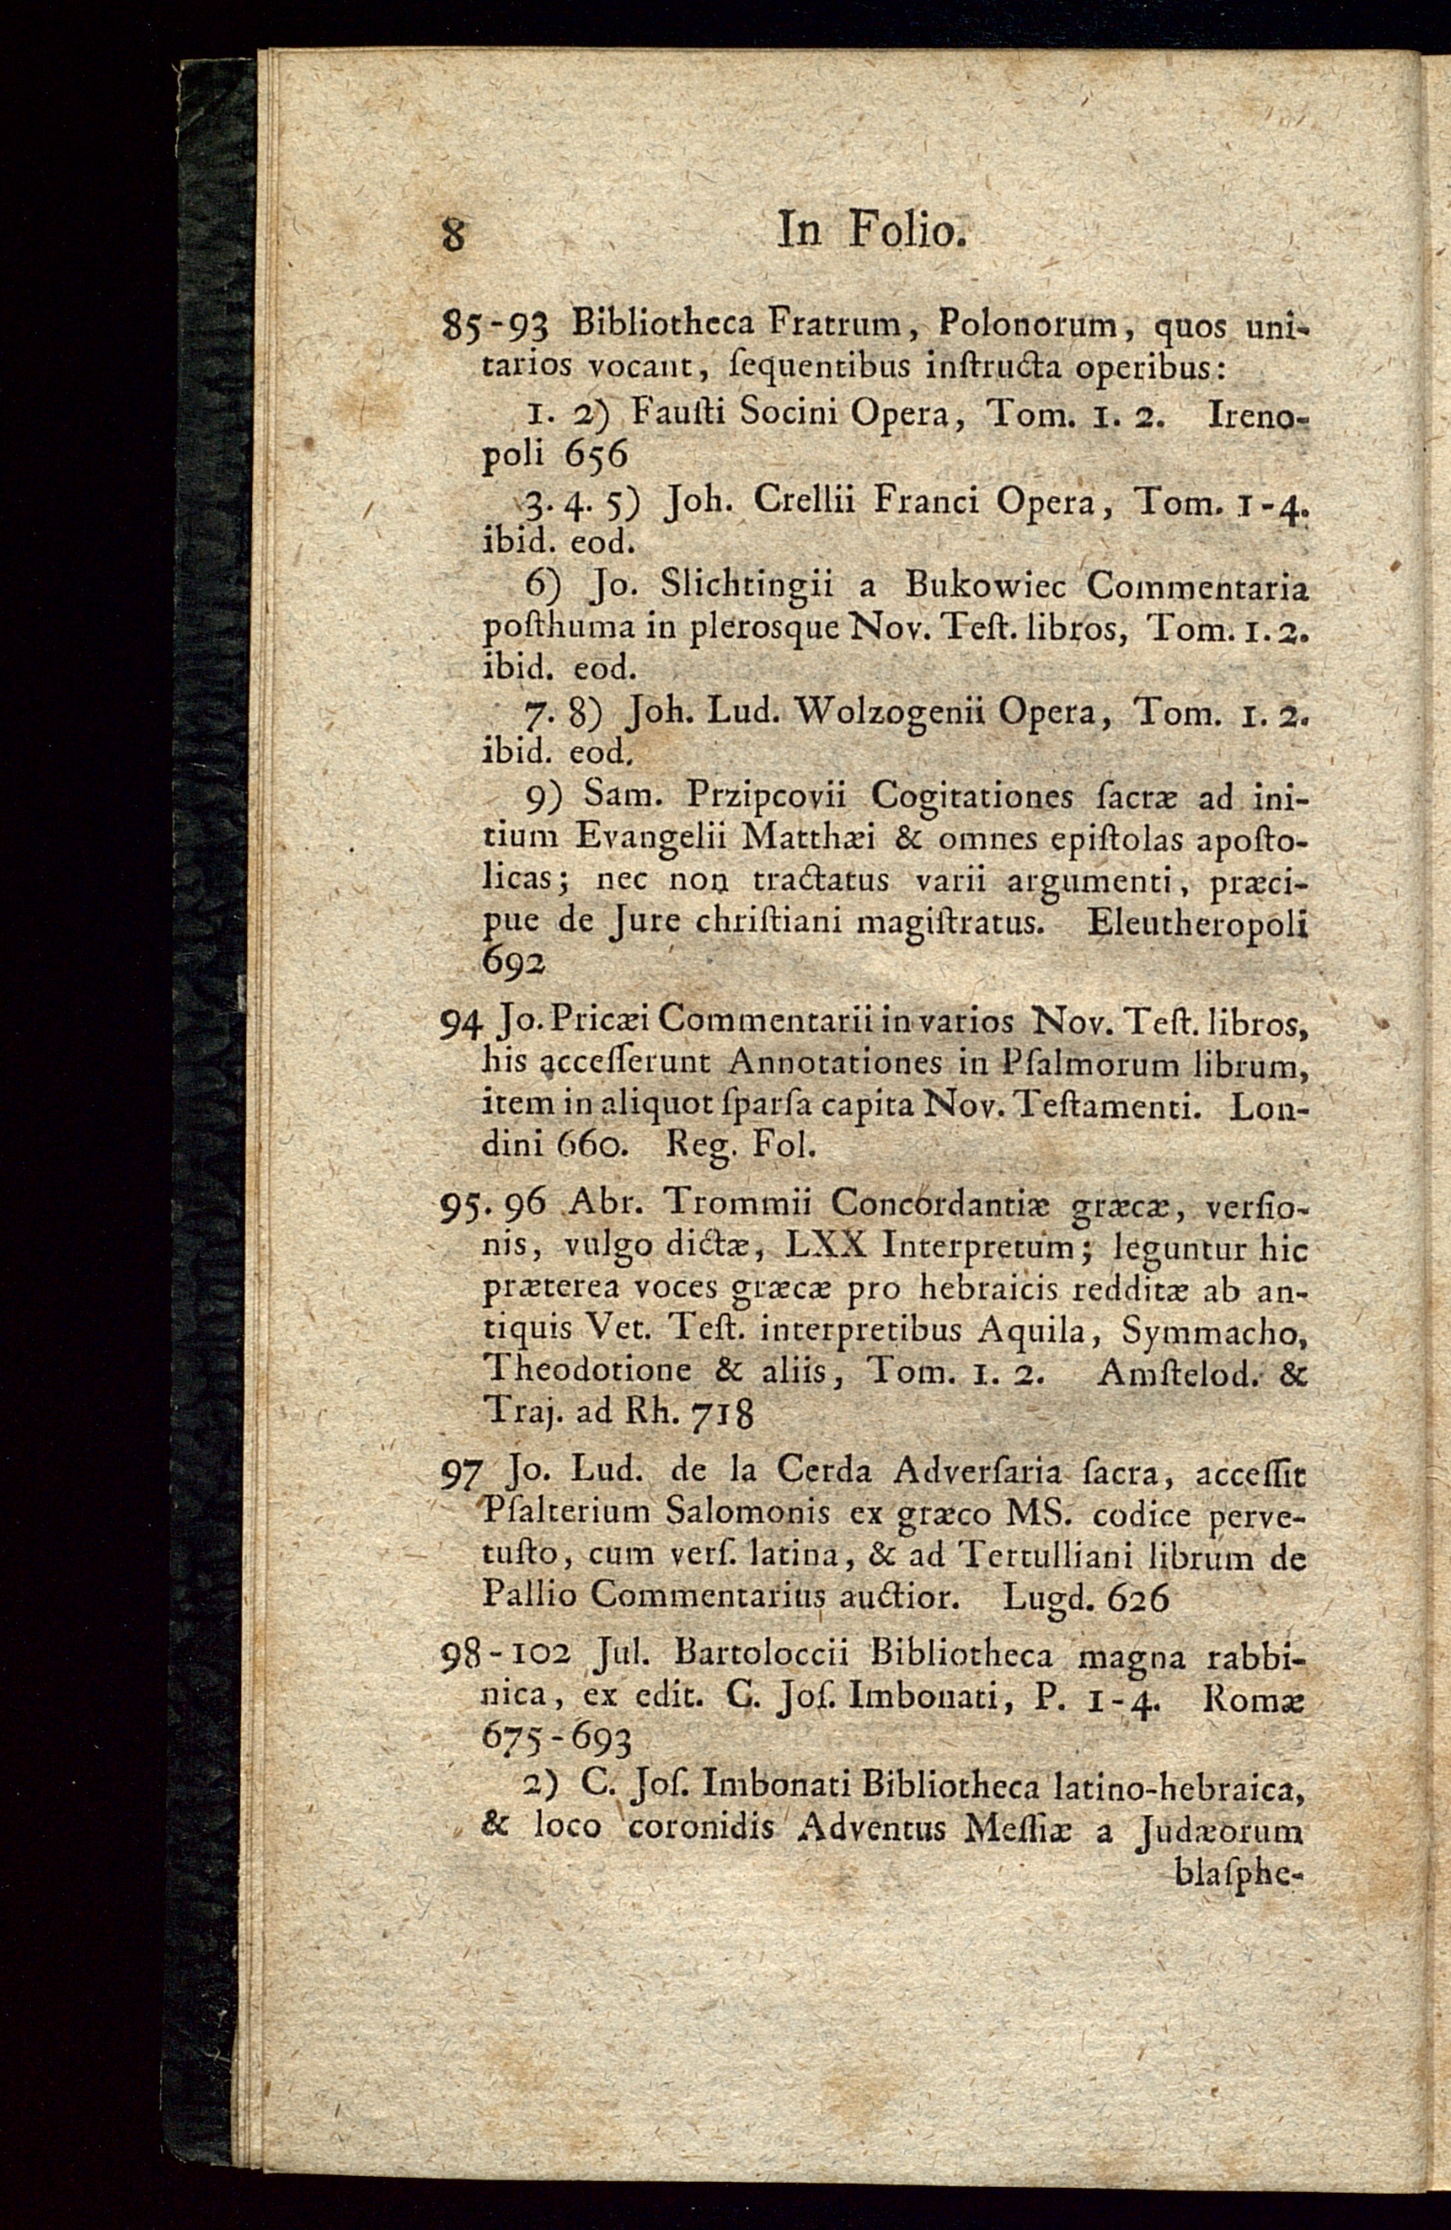 8 In Folio.
85-93 Bibliotheca Fratrum, Polonorum, quos uni-
tarios vocant, ſequentibus inſtructa operibus:
1. 2) Fauſti Socini Opera, Tom. 1. 2. Ireno-
poli 656
3. 4. 5) Joh. Crellii Franci Opera, Tom. 1-4.
ibid. eod.
6) Jo. Slichtingii a Bukowiec Commentaria
poſthuma in plerosque Nov. Teſt. libros, Tom. 1. 2.
ibid. eod.
7. 8) Joh. Lud. Wolzogenii Opera, Tom. 1. 2.
ibid. eod.
9) Sam. Przipcovii Cogitationes ſacræ ad ini-
tium Evangelii Matthæi & omnes epiſtolas apoſto-
licas; nec non tractatus varii argumenti, præci-
pue de Jure chriſtiani magiſtratus. Eleutheropoli
692
94 Jo. Pricæi Commentarii in varios Nov. Teſt. libros,
his acceſſerunt Annotationes in Pſalmorum librum,
item in aliquot ſparſa capita Nov. Teſtamenti. Lon-
dini 660. Reg. Fol.
95. 96 Abr. Trommii Concordantiæ græcæ, verſio-
nis, vulgo dictæ, LXX Interpretum; leguntur hic
præterea voces græcæ pro hebraicis redditæ ab an-
tiquis Vet. Teſt. interpretibus Aquila, Symmacho,
Theodotione & aliis, Tom. 1. 2. Amſtelod. &
Traj. ad Rh. 718
97 Jo. Lud. de la Cerda Adverſaria ſacra, acceſſit
Pſalterium Salomonis ex græco MS. codice perve-
tuſto, cum verſ. latina, & ad Tertulliani librum de
Pallio Commentarius auctior. Lugd. 626
98-102 Jul. Bartoloccii Bibliotheca magna rabbi-
nica, ex edit. C. Joſ. Imbonati, P. 1-4. Romæ
675-693
2) C. Joſ. Imbonati Bibliotheca latino-hebraica,
& loco coronidis Adventus Meſſiæ a Judæorum
blaſphe-